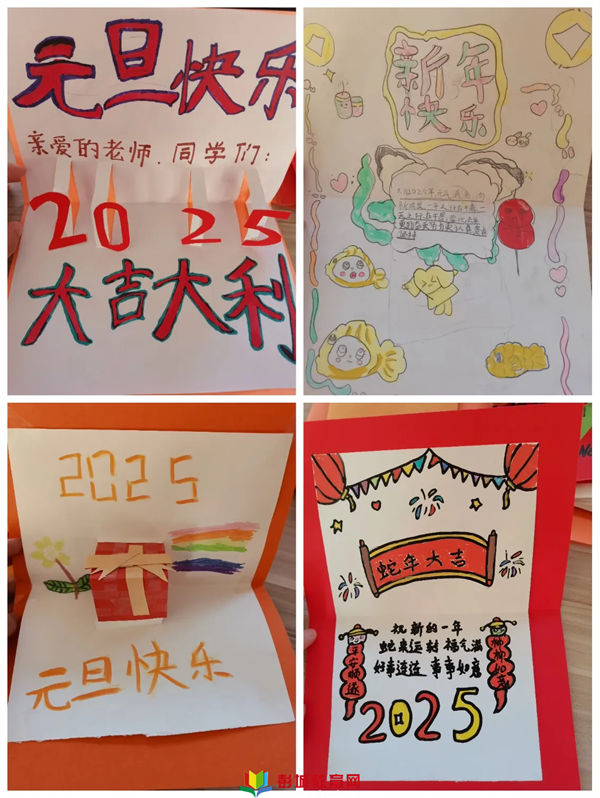 元旦快乐
亲爱的老师、同学们：
2025
大吉大利
新年
快乐
2025
元旦快乐
蛇年大吉
祝新的一年
蛇来运转 福气满
好事连连 事事如意
平安顺遂
2025
彭城教育网